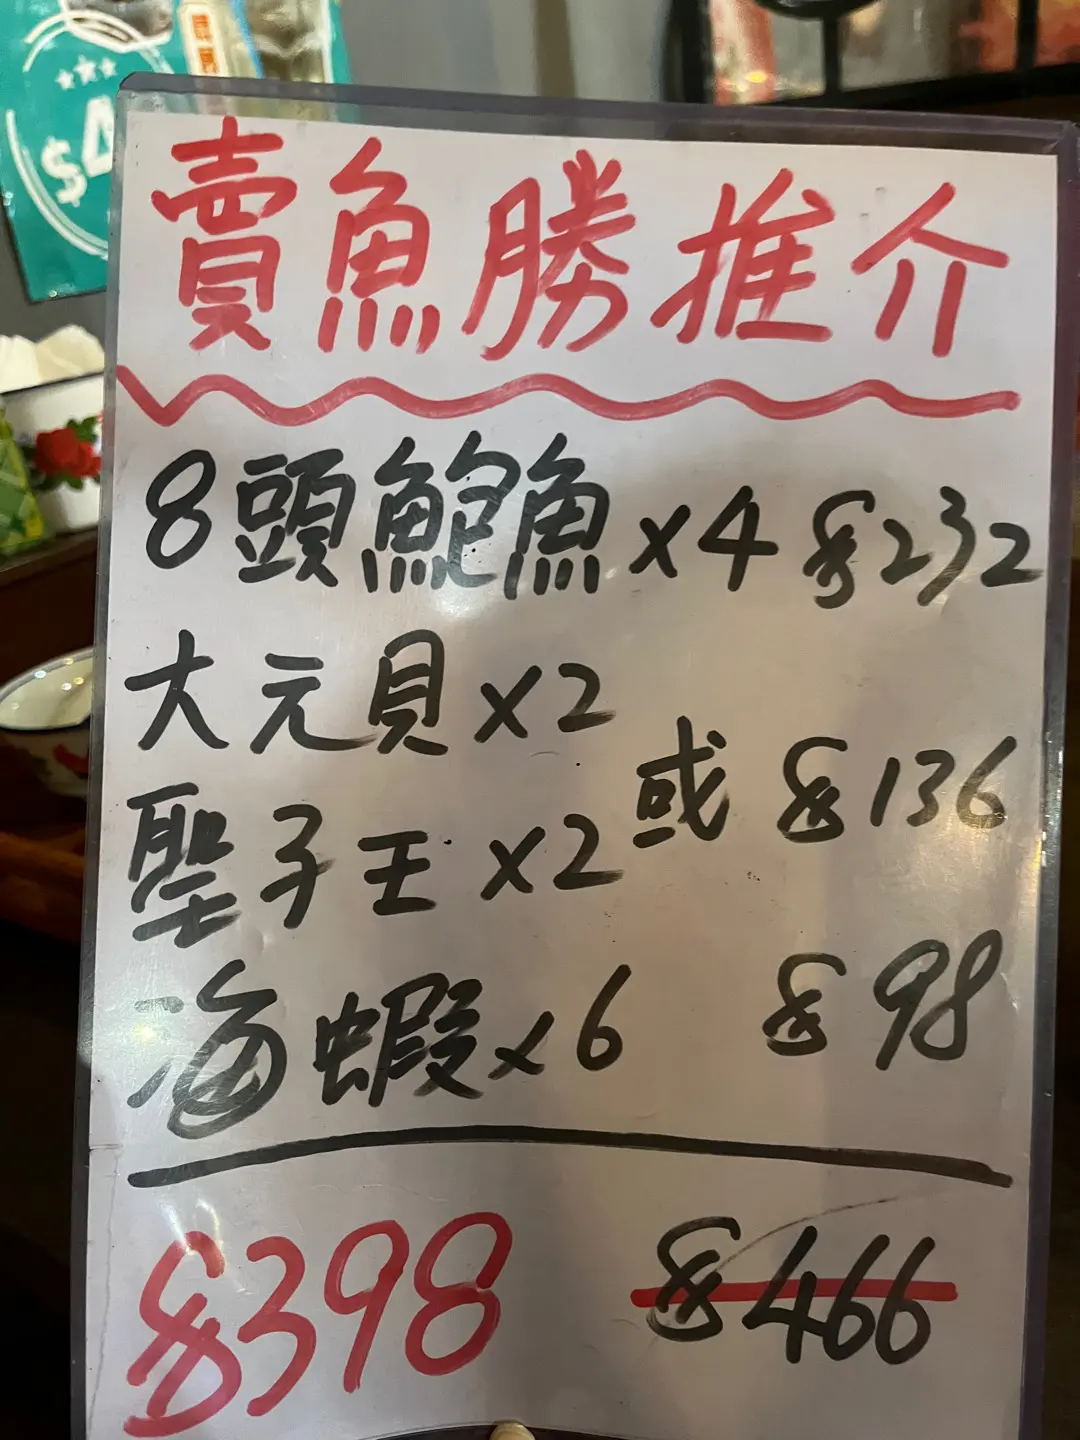 $4
賣魚勝推介
8頭鮑魚x4 $232
大元貝x2
或 $136
聖子王x2
海蝦x6 $98
$398 $466